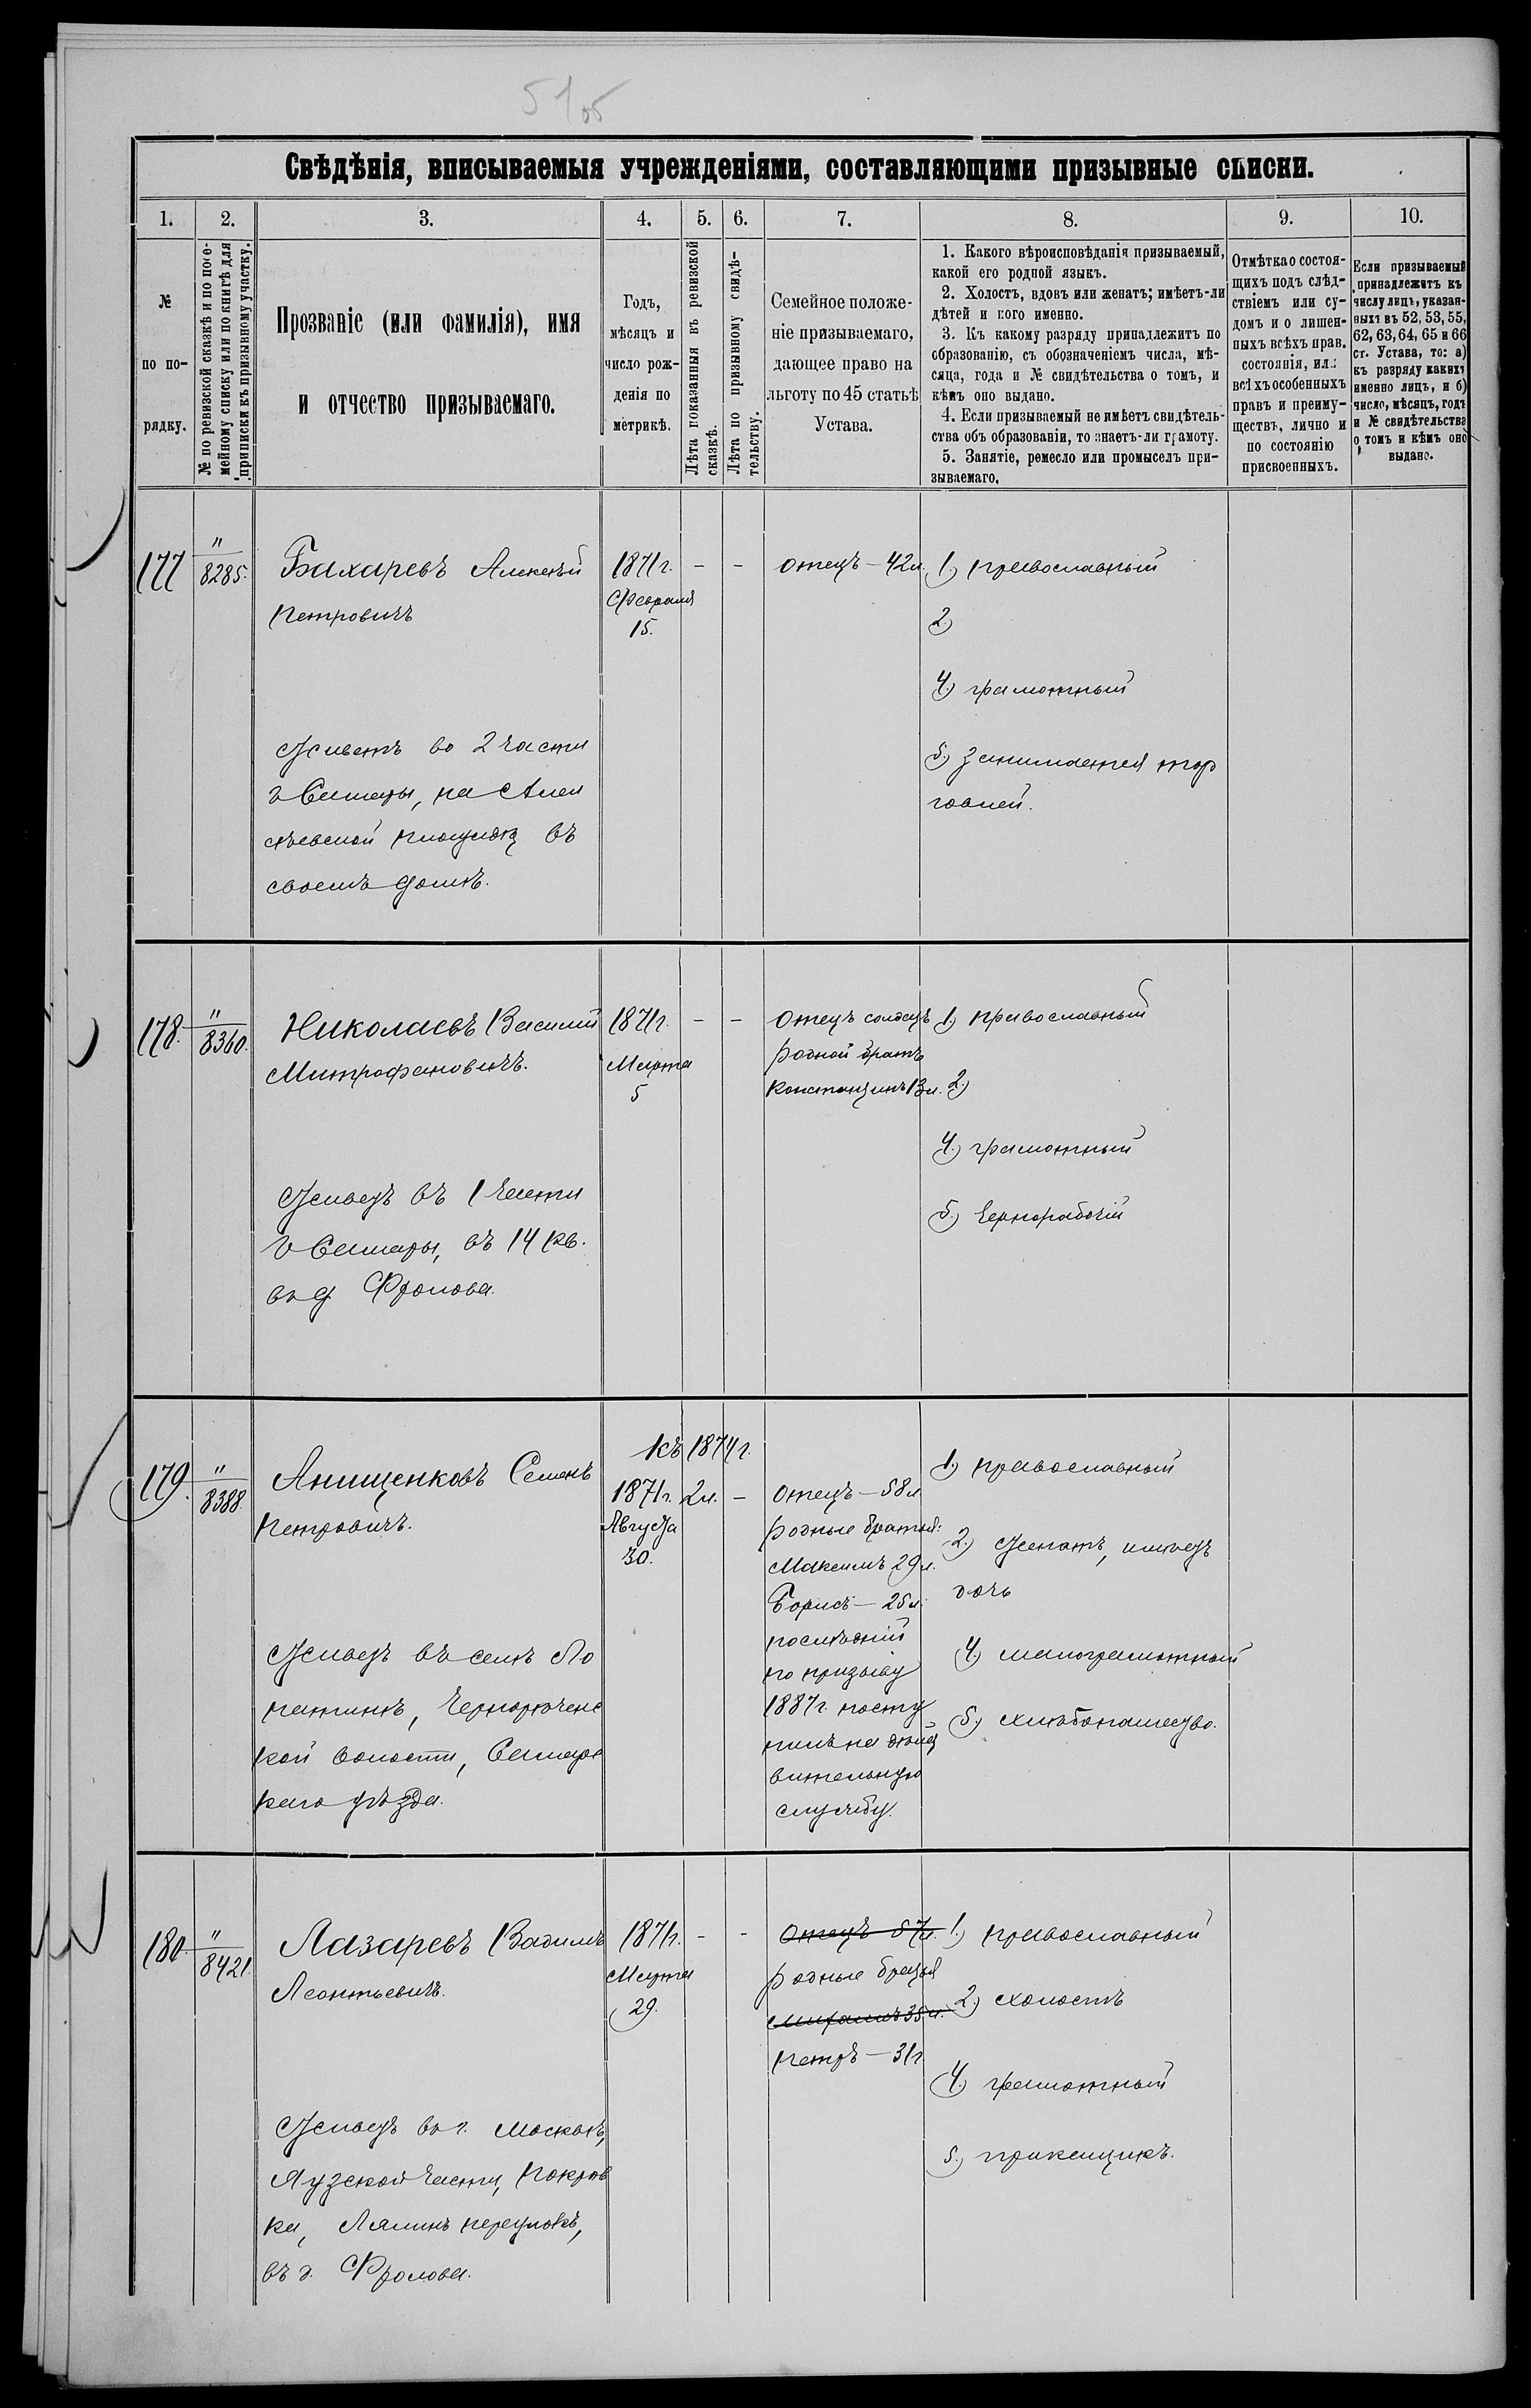 51об
Свѣдѣнія, вписываемыя учрежденіями, составляющими призывные списки.
1. 2. 3. 4. 5. 6. 7. 8. 9. 10.
№
по по-
рядку.
№ по ревизской сказкѣ и по посе-
мейному списку или по книгѣ для
приписки къ призывному участку.
Прозваніе (или фамилія), имя
и отчество призываемаго.
Годъ,
мѣсяцъ и
число рож-
денія по
метрикѣ.
Лѣта показанныя въ ревизской
сказкѣ.
Лѣта по призывному свидѣ-
тельству.
Семейное положе-
ніе призываемаго,
дающее право на
льготу по 45 статьѣ
Устава.
1. Какого вѣроисповѣданія призываемый,
какой его родной языкъ.
2. Холостъ, вдовъ или женатъ; имѣетъ-ли
дѣтей и кого именно.
3. Къ какому разряду принадлежитъ по
образованію, съ обозначеніемъ числа, мѣ-
сяца, года и № свидѣтельства о томъ, и
кѣмъ оно выдано.
4. Если призываемый не имѣетъ свидѣтель-
ства объ образованіи, то знаетъ-ли грамоту.
5. Занятіе, ремесло или промыселъ при-
зываемаго.
Отмѣтка о состоя-
щихъ подъ слѣд-
ствіемъ или су-
домъ и о лишен-
ныхъ всѣхъ прав.
состоянія, или
всѣхъ особенныхъ
правъ и преиму-
ществъ, лично и
по состоянію
присвоенныхъ.
Если призываемый
принадлежитъ къ
числу лицъ, указан-
ныхъ въ 52, 53, 55,
62, 63, 64, 65 и 66
ст. Устава, то: а)
къ разряду какихъ
именно лицъ, и б)
число, мѣсяцъ, годъ
и № свидѣтельства
о томъ и кѣмъ оно
выдано.
177 "/8285. Бахаревъ Алексѣй
Петровичъ
1871 г.
Февраля
15.
- -
отецъ - 42 л.
1) православный
2)
4) грамотный
5) занимается тор
говлей.
Живетъ во 2 части
г Самары, на Алек
сѣевской площади въ
своемъ домѣ.
178. "/8360. Николаевъ Василій
Митрофановичъ.
1871 г.
Марта
5
- -
Отецъ солдатъ
родной братъ
Константинъ 13 л.
1) православный
2)
4) грамотный
5) Чернорабочій
Живетъ въ 1 части
г Самары, въ 14 кв.
въ д Фролова.
179. "/8388. Анищенковъ Семенъ
Петровичъ.
къ 1874 г.
1871 г. 2 л. -
Августа
30.
отецъ - 58 л
родные братья:
Максимъ 29 л.
Борисъ - 25 л.
послѣдній
по призыву
1887 г. посту
пилъ на дѣйст
вительную
службу.
1) православный
2) Женатъ, имѣетъ
дочь
4) малограмотный
5) хлѣбопашество.
Живетъ въ селѣ Ло
патинѣ, Чернорѣченс
кой волости, Самарс
каго уѣзда.
180 "/8421. Лазаревъ Вадимъ
Леонтьевичъ.
1871 г.
Марта
29.
- -
отецъ 57 л.
родные братья
Михаилъ 35 л.
Петръ - 31 г.
1) православный
2) холостъ
4) грамотный
5) прикащикъ.
Живетъ въ г. Москвѣ,
Яузской части, Покров
ка, Лялинъ переулокъ,
въ д. Фролова.